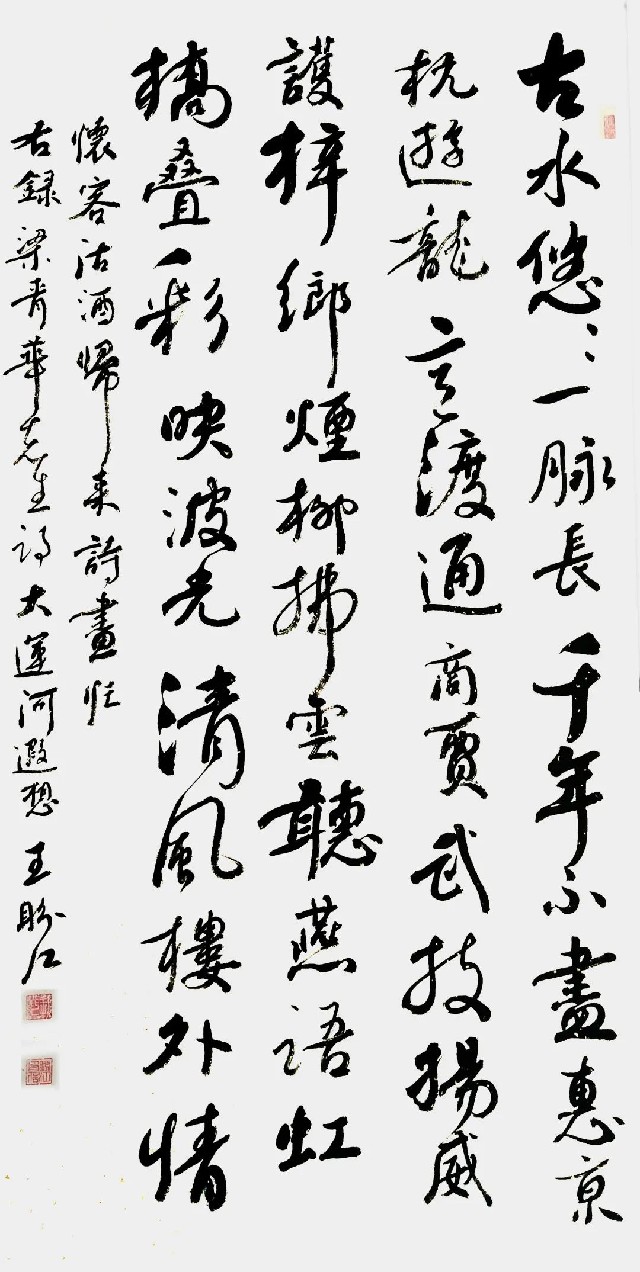 古水悠〻一脉長千年不盡惠京
杭遊龍言渡通商賈武技揚威
護梓鄉煙柳拂雲聽燕語虹
橋叠彩映波光清風樓外情
懷客沽酒歸来詩畫忙
右録梁青華先生詩大運河遐想王勝江